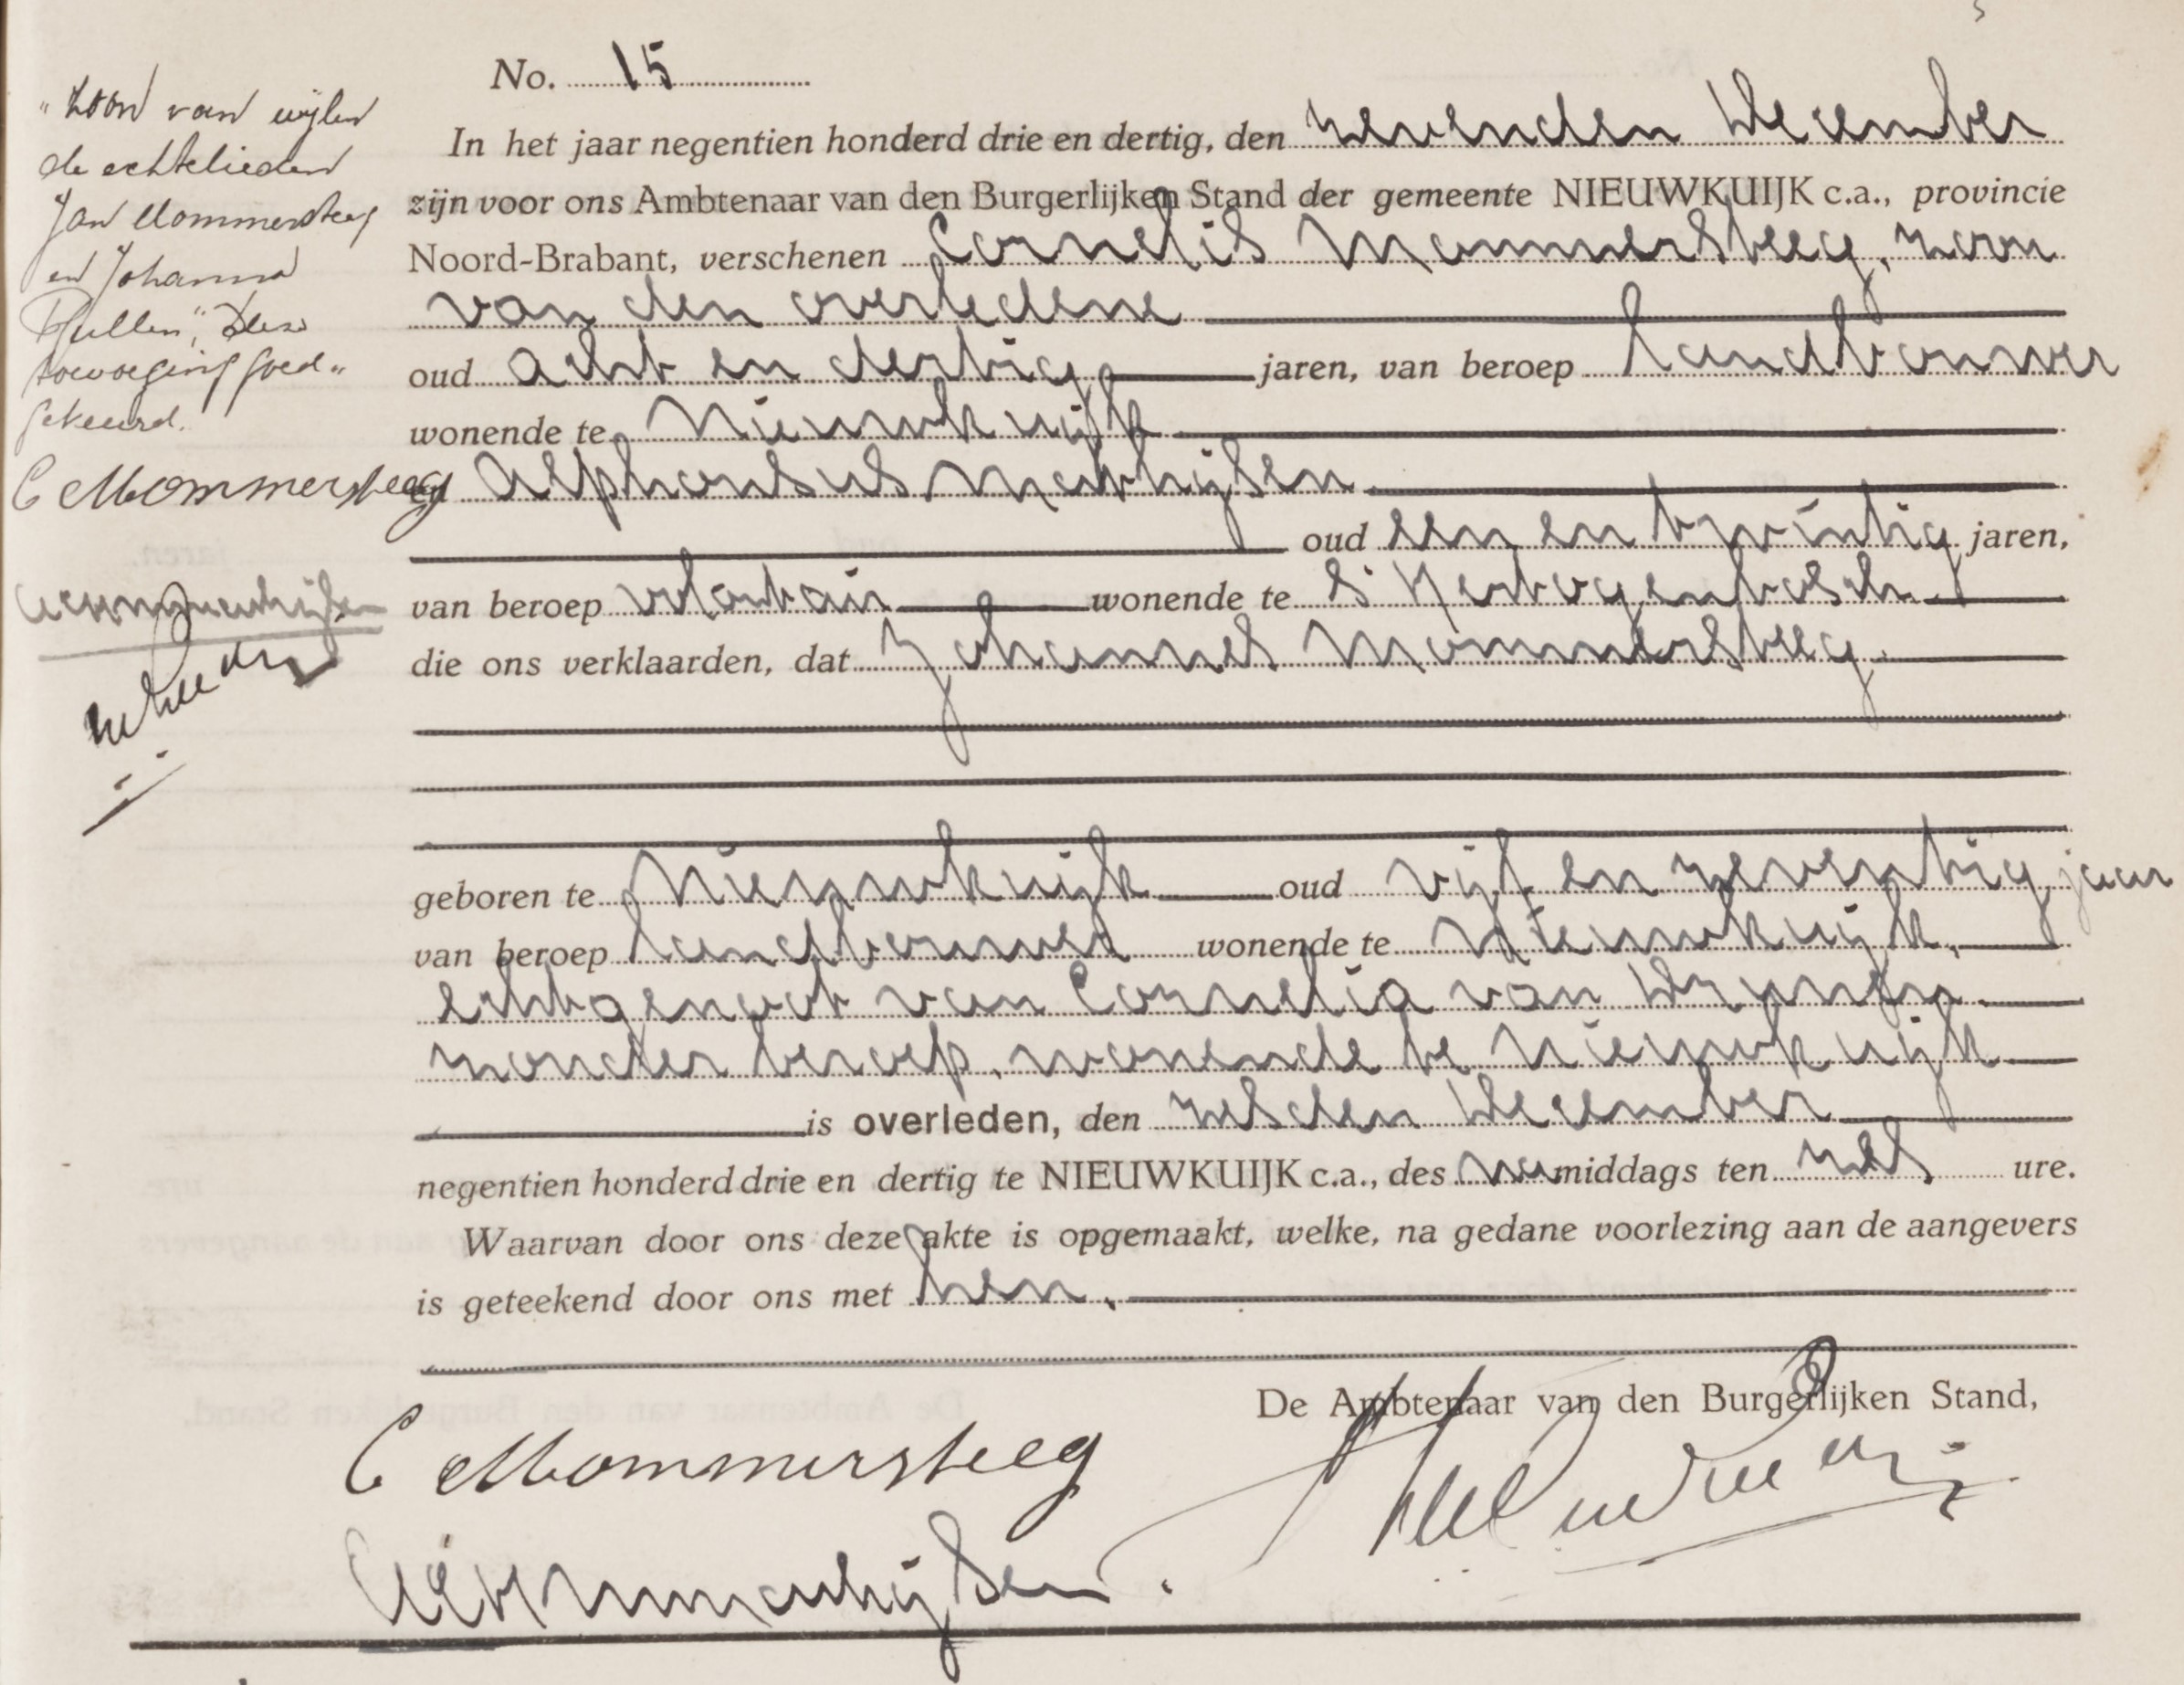 No. 15
"zoon van wijlen
de echtelieden
Jan Mommersteeg
en Johanna
Pullen", Deze
toevoeging goed-
gekeurd.
C Mommersteeg
In het jaar negentien honderd drie en dertig, den zevenden December
zijn voor ons Ambtenaar van den Burgerlijken Stand der gemeente NIEUWKUIJK c.a., provincie
Noord-Brabant, verschenen Cornelis Mommersteeg, zoon
van den overledene
oud acht en dertig jaren, van beroep landbouwer
wonende te Nieuwkuijk
en Alphonsus Mathijsen
oud een en twintig jaren,
van beroep volontair wonende te 's Hertogenbosch
die ons verklaarden, dat Johannes Mommersteeg
geboren te Nieuwkuijk oud vijf en zeventig jaar
van beroep landbouwer wonende te Nieuwkuijk,
echtgenoot van Cornelia van
zonder beroep, wonende te Nieuwkuijk
is overleden, den zesden December
negentien honderd drie en dertig te NIEUWKUIJK c.a., des namiddags ten zes ure.
Waarvan door ons deze akte is opgemaakt, welke, na gedane voorlezing aan de aangevers
is geteekend door ons met hen.
De Ambtenaar van den Burgerlijken Stand,
C Mommersteeg